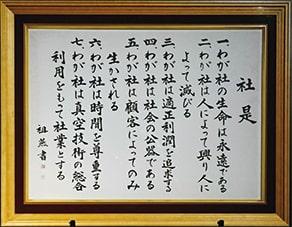 社是
一、わが社の生命は永遠である
二、わが社は人によって興り人に
よって滅びる
三、わが社は適正利潤を追求する
四、わが社は社会の公器である
五、わが社は顧客によってのみ
生かされる
六、わが社は時間を尊重する
七、わが社は真空技術の総合
利用をもって社業とする
祖 書